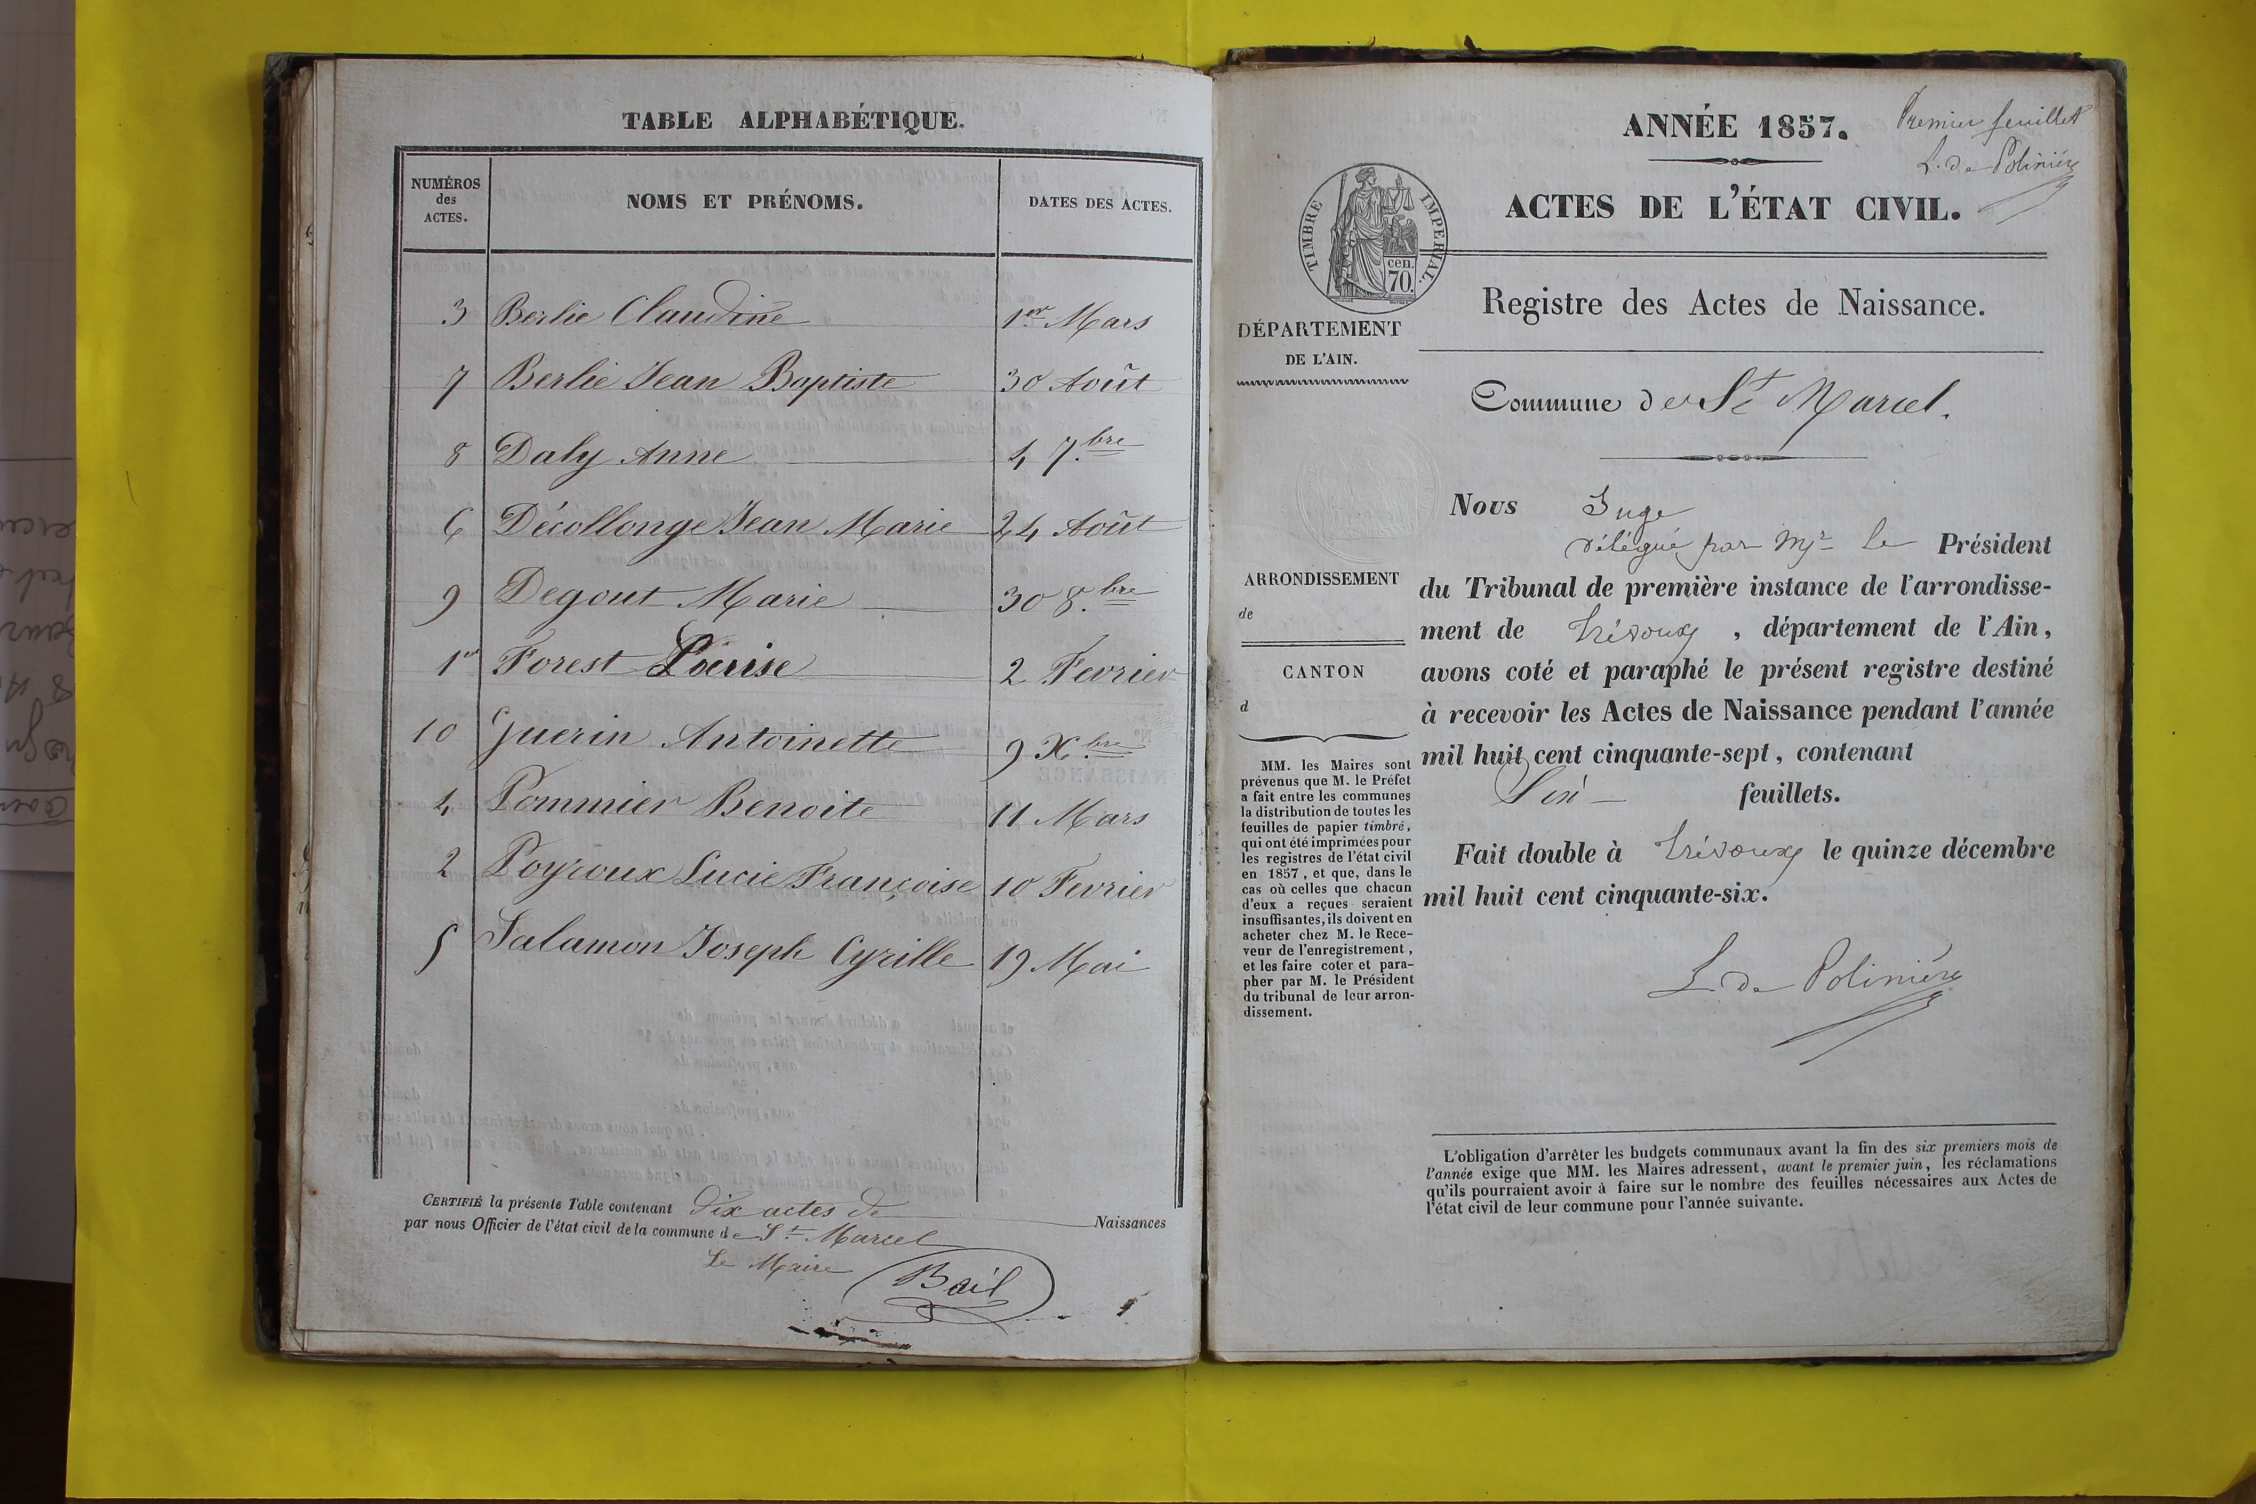 TABLE ALPHABÉTIQUE.
NUMÉROS
des
ACTES.
NOMS ET PRÉNOMS.
DATES DES ACTES.
3 Berlie Claudine 1er Mars
7 Berlie Jean Baptiste 30 Août
8 Daly Anne 4 7.bre
6 Décollonge Jean Marie 24 Août
9 Degout Marie 30 8.bre
1er Forest Louise 2 Fevrier
10 Guerin Antoinette 9 X.bre
4 Pommier Benoite 11 Mars
2 Poyroux Lucie Françoise 10 Fevrier
5 Salamon Joseph Cyrille 19 Mai
CERTIFIÉ la présente Table contenant Dix actes de Naissances
par nous Officier de l'état civil de la commune de St Marcel
Le Maire
Bail
ANNÉE 1857.
Premier feuillet
L. de Polinière
ACTES DE L'ÉTAT CIVIL.
TIMBRE IMPERIAL.
cen.
70.
Registre des Actes de Naissance.
DÉPARTEMENT
DE L'AIN.
Commune de St Marcel.
Nous Juge
délégué par Mr le Président
du Tribunal de première instance de l'arrondisse-
ment de Trévoux, département de l'Ain,
avons coté et paraphé le présent registre destiné
à recevoir les Actes de Naissance pendant l'année
mil huit cent cinquante-sept, contenant
Six feuillets.
Fait double à Trévoux le quinze décembre
mil huit cent cinquante-six.
L. de Polinière
ARRONDISSEMENT
de
CANTON
d
MM. les Maires sont
prévenus que M. le Préfet
a fait entre les communes
la distribution de toutes les
feuilles de papier timbré,
qui ont été imprimées pour
les registres de l'état civil
en 1857, et que, dans le
cas où celles que chacun
d'eux a reçues seraient
insuffisantes, ils doivent en
acheter chez M. le Rece-
veur de l'enregistrement,
et les faire coter et para-
pher par M. le Président
du tribunal de leur arron-
dissement.
L'obligation d'arrêter les budgets communaux avant la fin des six premiers mois de
l'année exige que MM. les Maires adressent, avant le premier juin, les réclamations
qu'ils pourraient avoir à faire sur le nombre des feuilles nécessaires aux Actes de
l'état civil de leur commune pour l'année suivante.